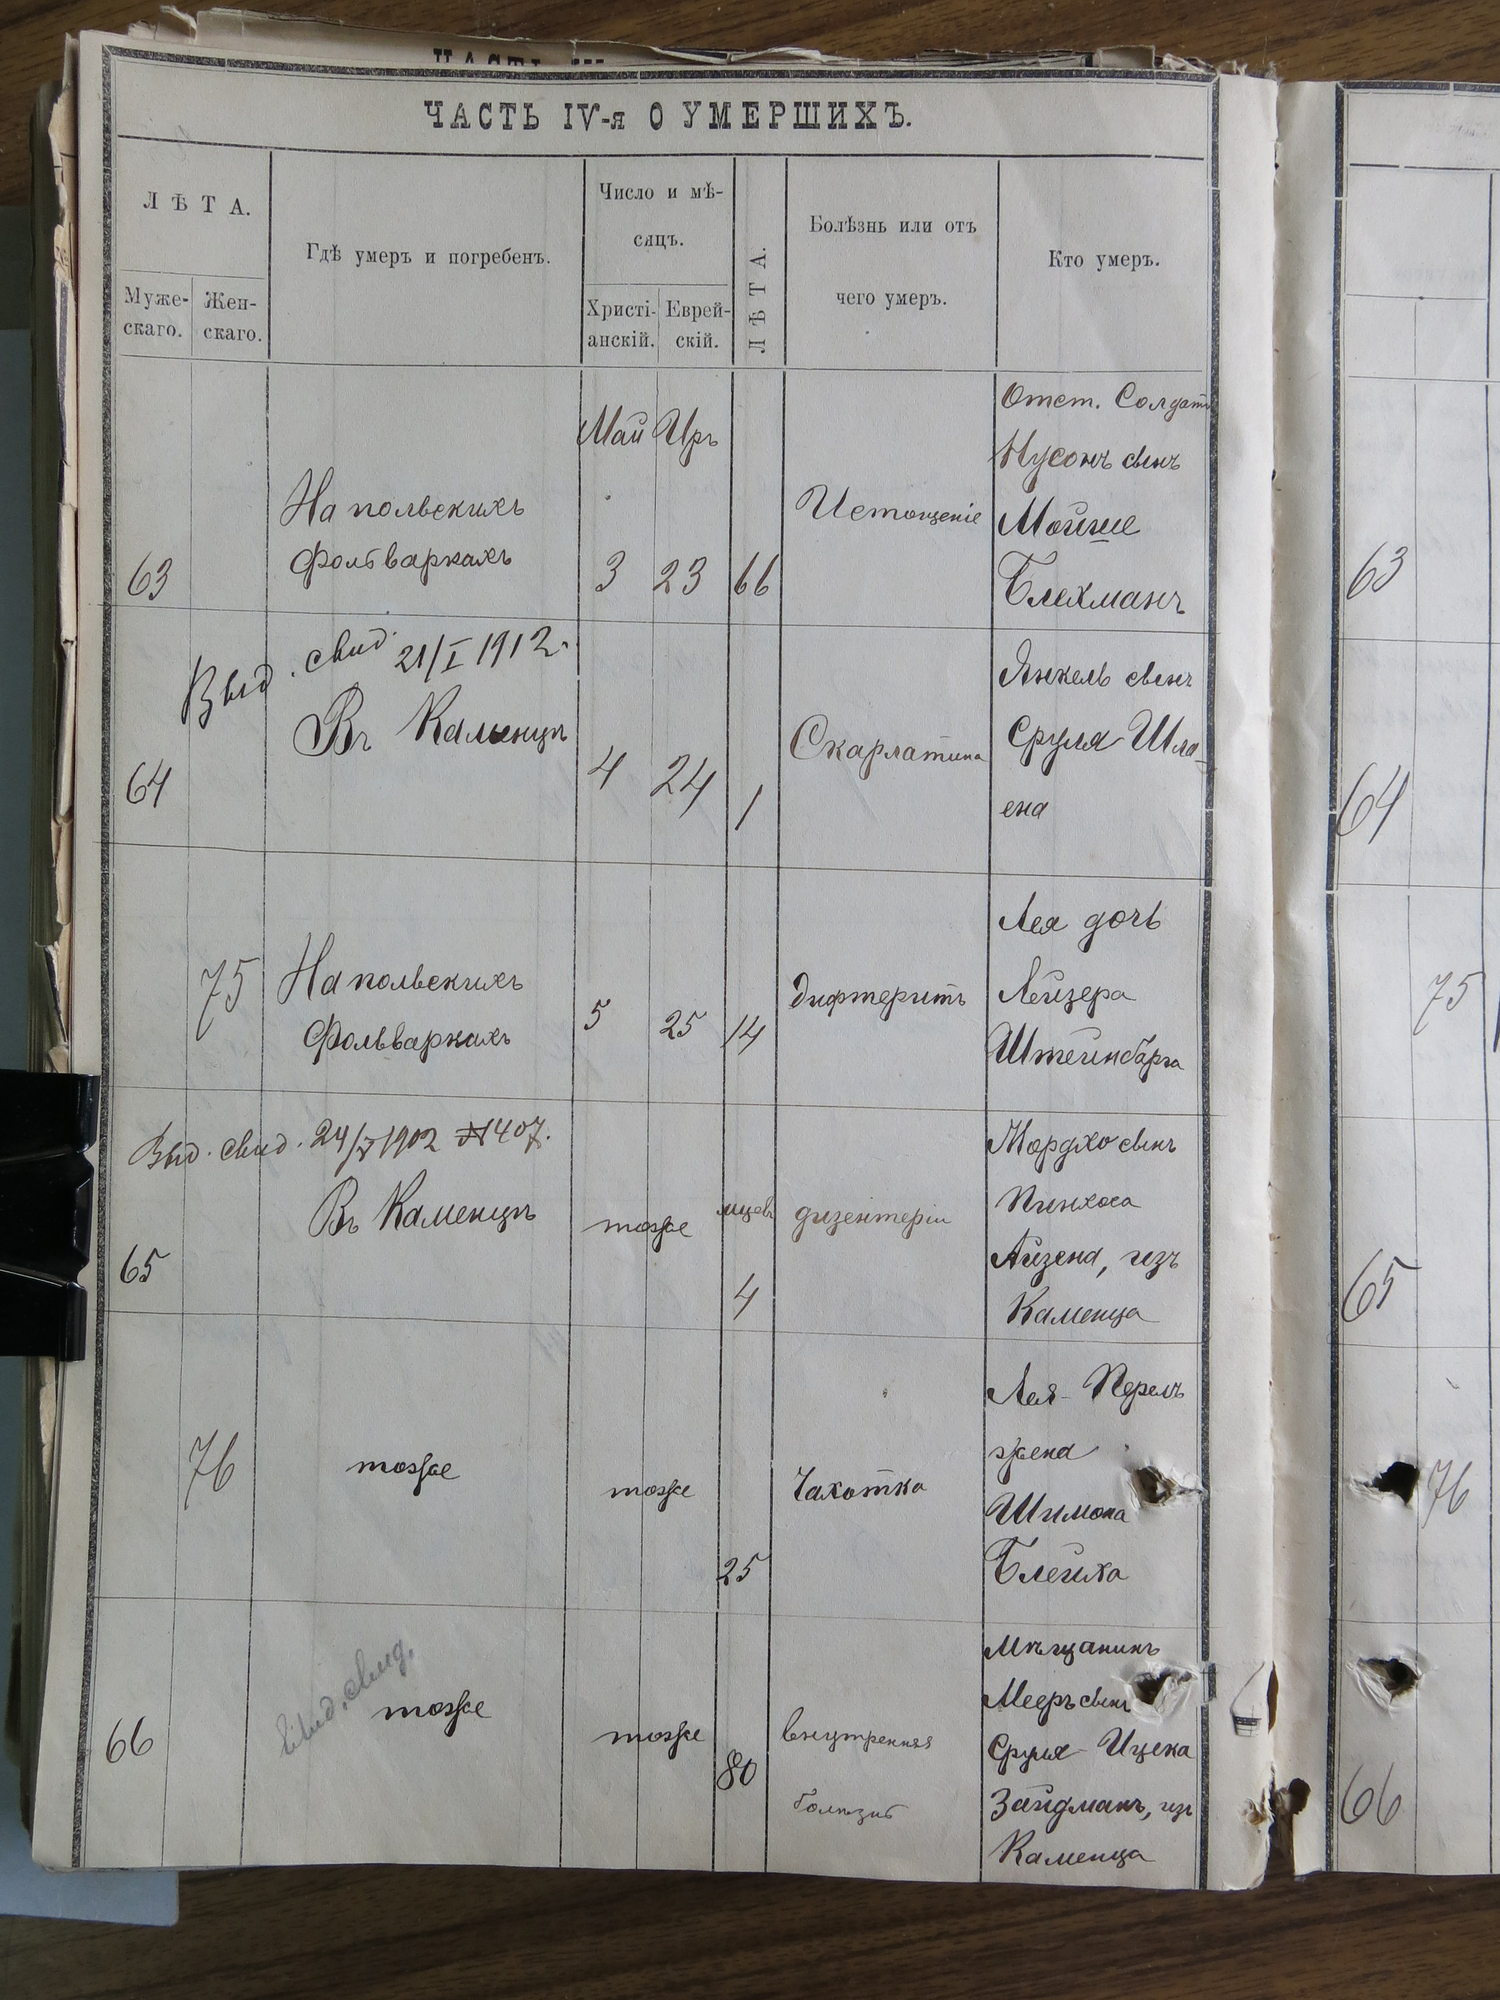 ЧАСТЬ IV-я О УМЕРШИХЪ.
ЛѢТА.
Мужескаго.
Женскаго.
Гдѣ умеръ и погребенъ.
Число и мѣ-
сяцъ.
Христі-
анскій.
Еврей-
скій.
ЛѢТА.
Болѣзнь или отъ
чего умеръ.
Кто умеръ.
Май Иръ
63
На польскихъ
фольваркахъ
3 23 66
Истощеніе
Отст. Солдатъ
Нусонъ сынъ
Мойше
Блехманъ
63
Выд. свид. 21/I 1912.
64
Въ Каменцѣ
4 24 1
Скарлатина
Янкель сынъ
Сруля Шла-
ена
64
75
На польскихъ
Фольваркахъ
5 25 14
Дифтеритъ
Лея дочь
Лейзера
Штейнбарга
75
Выд. свид. 24/V 1902 № 407.
65
Въ Каменцѣ
тоже
4
дизентерія
Мордхо сынъ
Пинхоса
Айзена, изъ
Каменца
65
76
тоже
тоже
25
Чахотка
Лея-Перель
жена
Шимона
Блейха
76
Выд. свид.
66
тоже
тоже
80
внутренняя
болѣзнь
Мѣщанинъ
Мееръ сынъ
Сруля-Ицека
Зайдманъ, изъ
Каменца
66